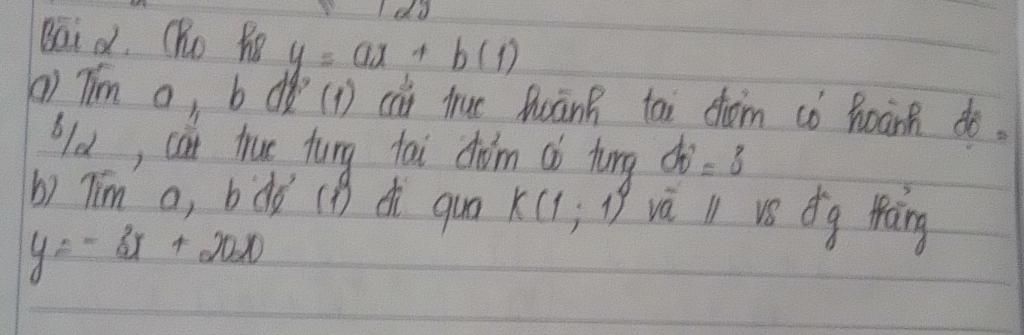 Bài 2. Cho hs y = ax + b (1)
a) Tìm a, b để (1) cắt trục hoành tại điểm có hoành độ =
3/2, cắt trục tung tại điểm có tung độ = 3
b) Tìm a, b để (1) đi qua K(1; 1) và // vs đg thẳng
y = - 3x + 2020